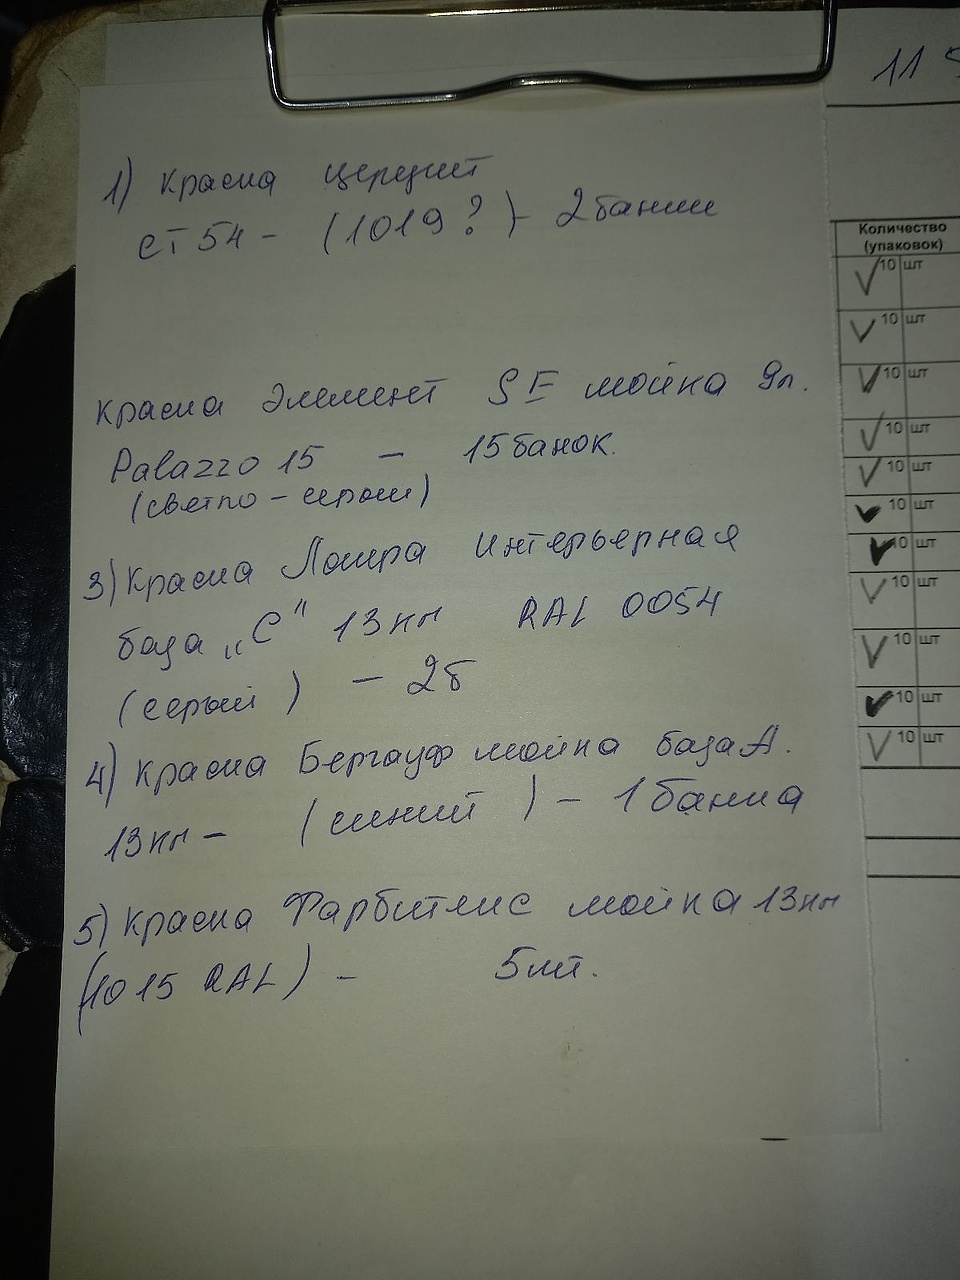 11
1) Краска церезит
ст 54 - (1019 ?) - 2 банки
Краска Элемент SE мойка 9л.
Palazzo 15 - 15 банок.
(светло - серый)
3) Краска Лакра Интерьерная
база „С" 13кг RAL 0054
(серый) - 2б
4) Краска Бергауф мойка база А.
13кг - (синий) - 1 банка
5) Краска Фарбитекс мойка 13кг
(1015 RAL) - 5шт.
Количество
(упаковок)
10 шт
10 шт
10 шт
10 шт
10 шт
10 шт
10 шт
10 шт
10 шт
10 шт
10 шт